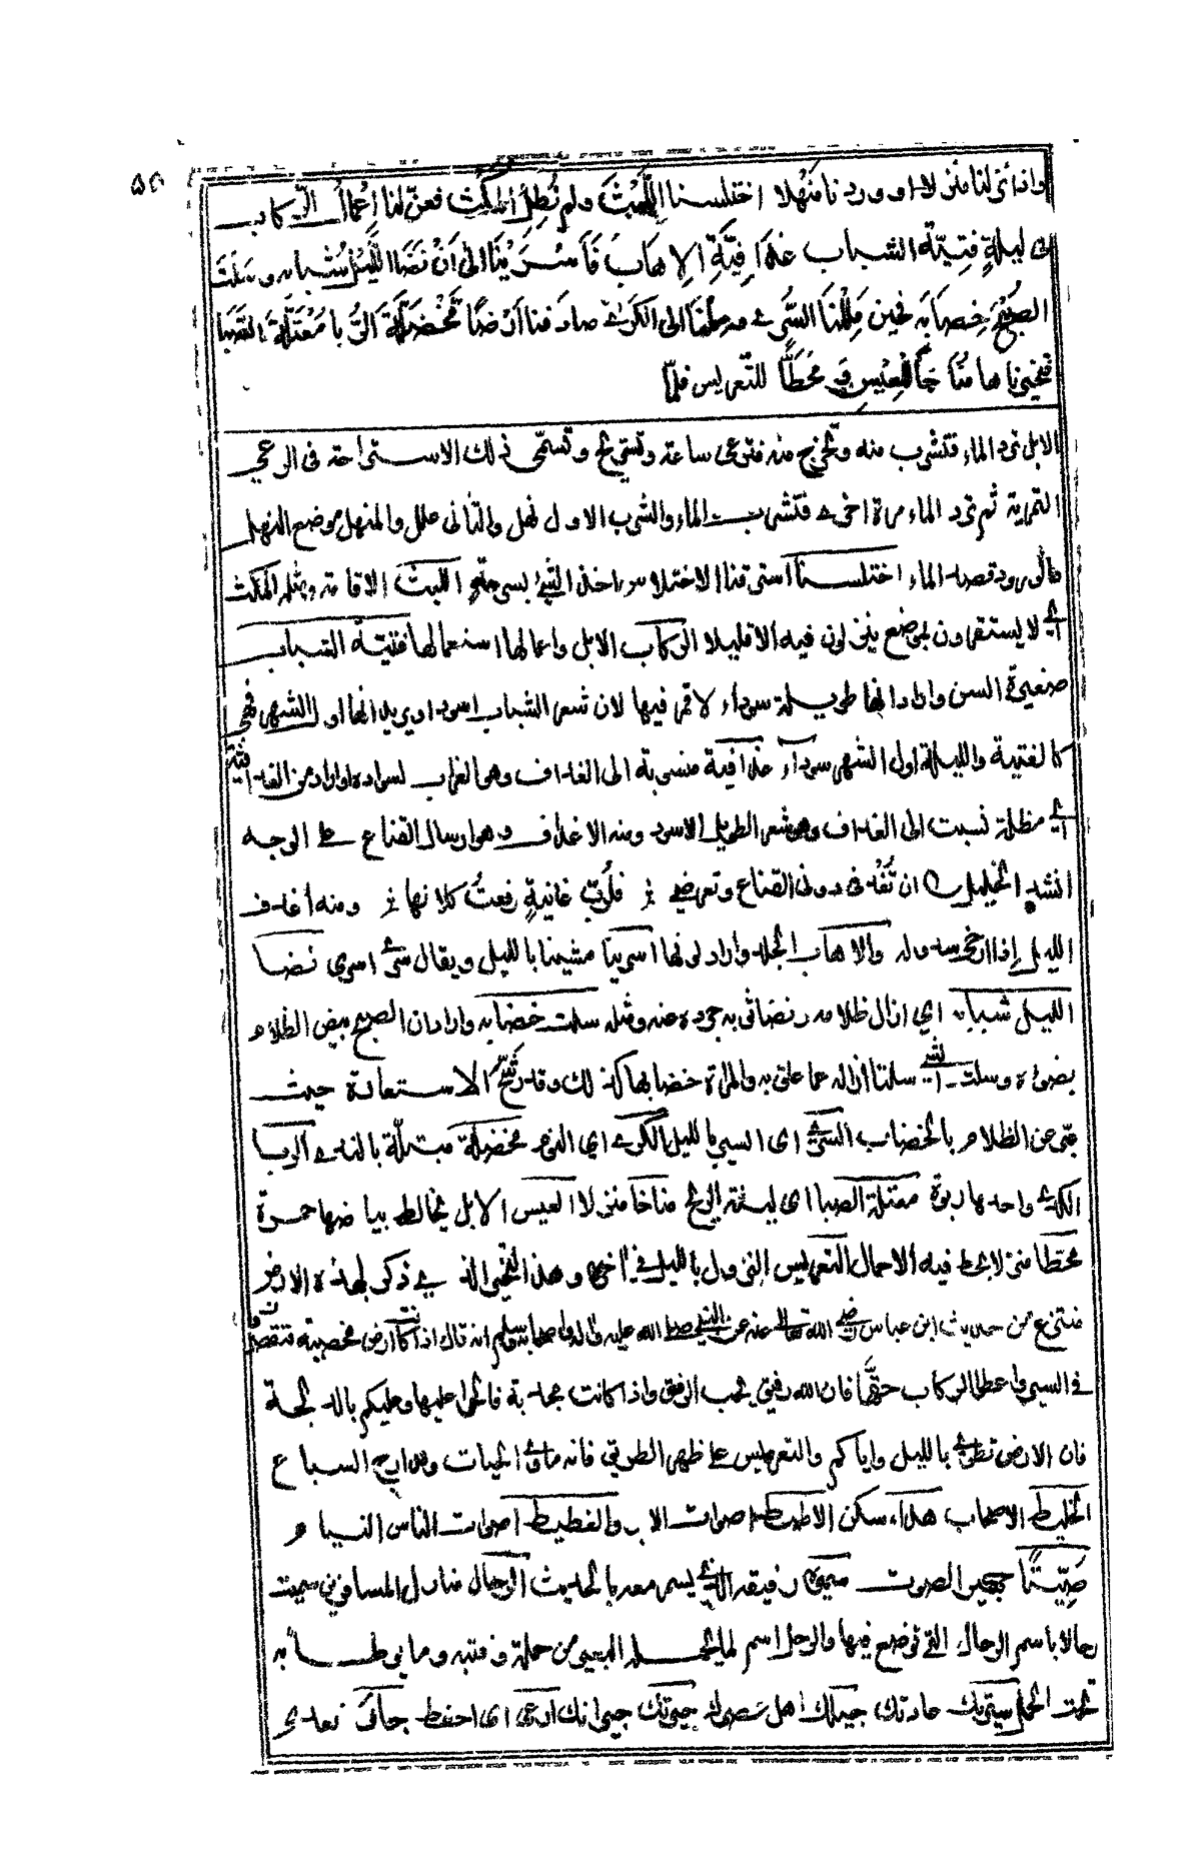 ٥٥
واذا نزلنا منزلا او وردنا منهلا اختلسنا اللُّبْثَ ولم نُطِلِ المكث فعنّ لنا إعمال الركاب
في ليلةٍ فتيّة الشباب غُدافيّةِ الإهاب فأسرَيْنا الى أنْ نَضَا الليلُ شبابه وسَلَتَ
الصبحُ خِضابَه فحين مَلِلْنا السُّرى ومِلْنا الى الكرى صادفنا أرضًا مُخْضَلّةَ الرُّبا مُعْتَلّةَ الصَّبا
فتخيّرناها مُناخًا للعِيسِ ومَحَطًّا للتعريس فلمّا
الابل ترد الماء فتشرب منه وتخرج منه فترعى ساعة وتستريح وتسمى ذلك الاستراحة في الرعي
التمرية ثم ترد الماء مرة اخرى فتشرب الماء والشرب الاول نهل والثاني علل والمنهل موضع النهل
ورد قصد الماء اختلسنا استرقنا الاختلاس اخذ الشيء بسرعة اللبث الاقامة ومثله المكث
اي لا يستقرون بموضع ينزلون فيه الا قليلا الركاب الابل واعمالها استعمالها فتية الشباب
صغيرة السن واراد انها طويلة سوداء لا قمر فيها لان شعر الشباب اسود او يريد انها اول الشهر فهي
كالفتية والليلة اول الشهر سوداء غدافية منسوبة الى الغداف وهو الغراب لسواده واراد من الغدافية
اي مظلمة نسبت الى الغداف وهو شعر الطويل الاسود ومنه الاغداف وهو ارسال القناع على الوجه
انشد الخليل ان تغدفي دوني القناع وتعرضي فلرب غانية رفعت كلانها ومنه أغدف
الليل إذا ارخى سدوله والاهاب الجلد واراد لونها اسرينا مشينا بالليل ويقال سرى اسرى نضا
الليل شبابه اي ازال ظلامه ونضا ثوبه جرده عنه ومثله سلت خضابه واراد ان الصبح بيض الظلام
بضوئه وسلت الشيء سلتا ازاله عما علق به والمراة خضابها كذلك وقد رشح الاستعارة حيث
عبر عن الظلام بالخضاب السرى اى السير بالليل الكرى اي النوم مخضلة مبتلة بالندى الربا
الكدى واحدها ربوة معتلة الصبا اى لينة الريح مناخا منزلا العيس الابل يخالط بياضها حمرة
محطا منزلا يحط فيه الاحمال التعريس النزول بالليل في اخره وهذا التخير الذي ذكر لهذه الارض
منتزع من حديث ابن عباس رضي الله تعالى عنه عن النبي صلى الله عليه واله واصحابه وسلم انه قال اذا كانت أرض مخصبة فتقصروا
في السير واعطوا الركاب حقّها فان الله رفيق يحب الرفق واذا كانت مجدبة فانجوا عليها وعليكم بالدلجة
فان الارض تطوى بالليل واياكم والتعريس على ظهر الطريق فانه مأوى الحيات ومدارج السباع
الخليط الاصحاب هدأ سكن الاطيط اصوات الابل والغطيط اصوات الناس النيام
صَيِّتًا جهير الصوت سميره رفيقه الذي يسمر معه بالحديث الرحال منازل المسافرين سميت
رحالا باسم الرحال التي توضع فيها والرحل اسم لما يحمله البعير من حملة وقتبه وما يوطأ به
تحت الحمل سيرتك عادتك جيلك اهل عصرك جيرتك جيرانك ارعى اى احفظ جارَ تعدى